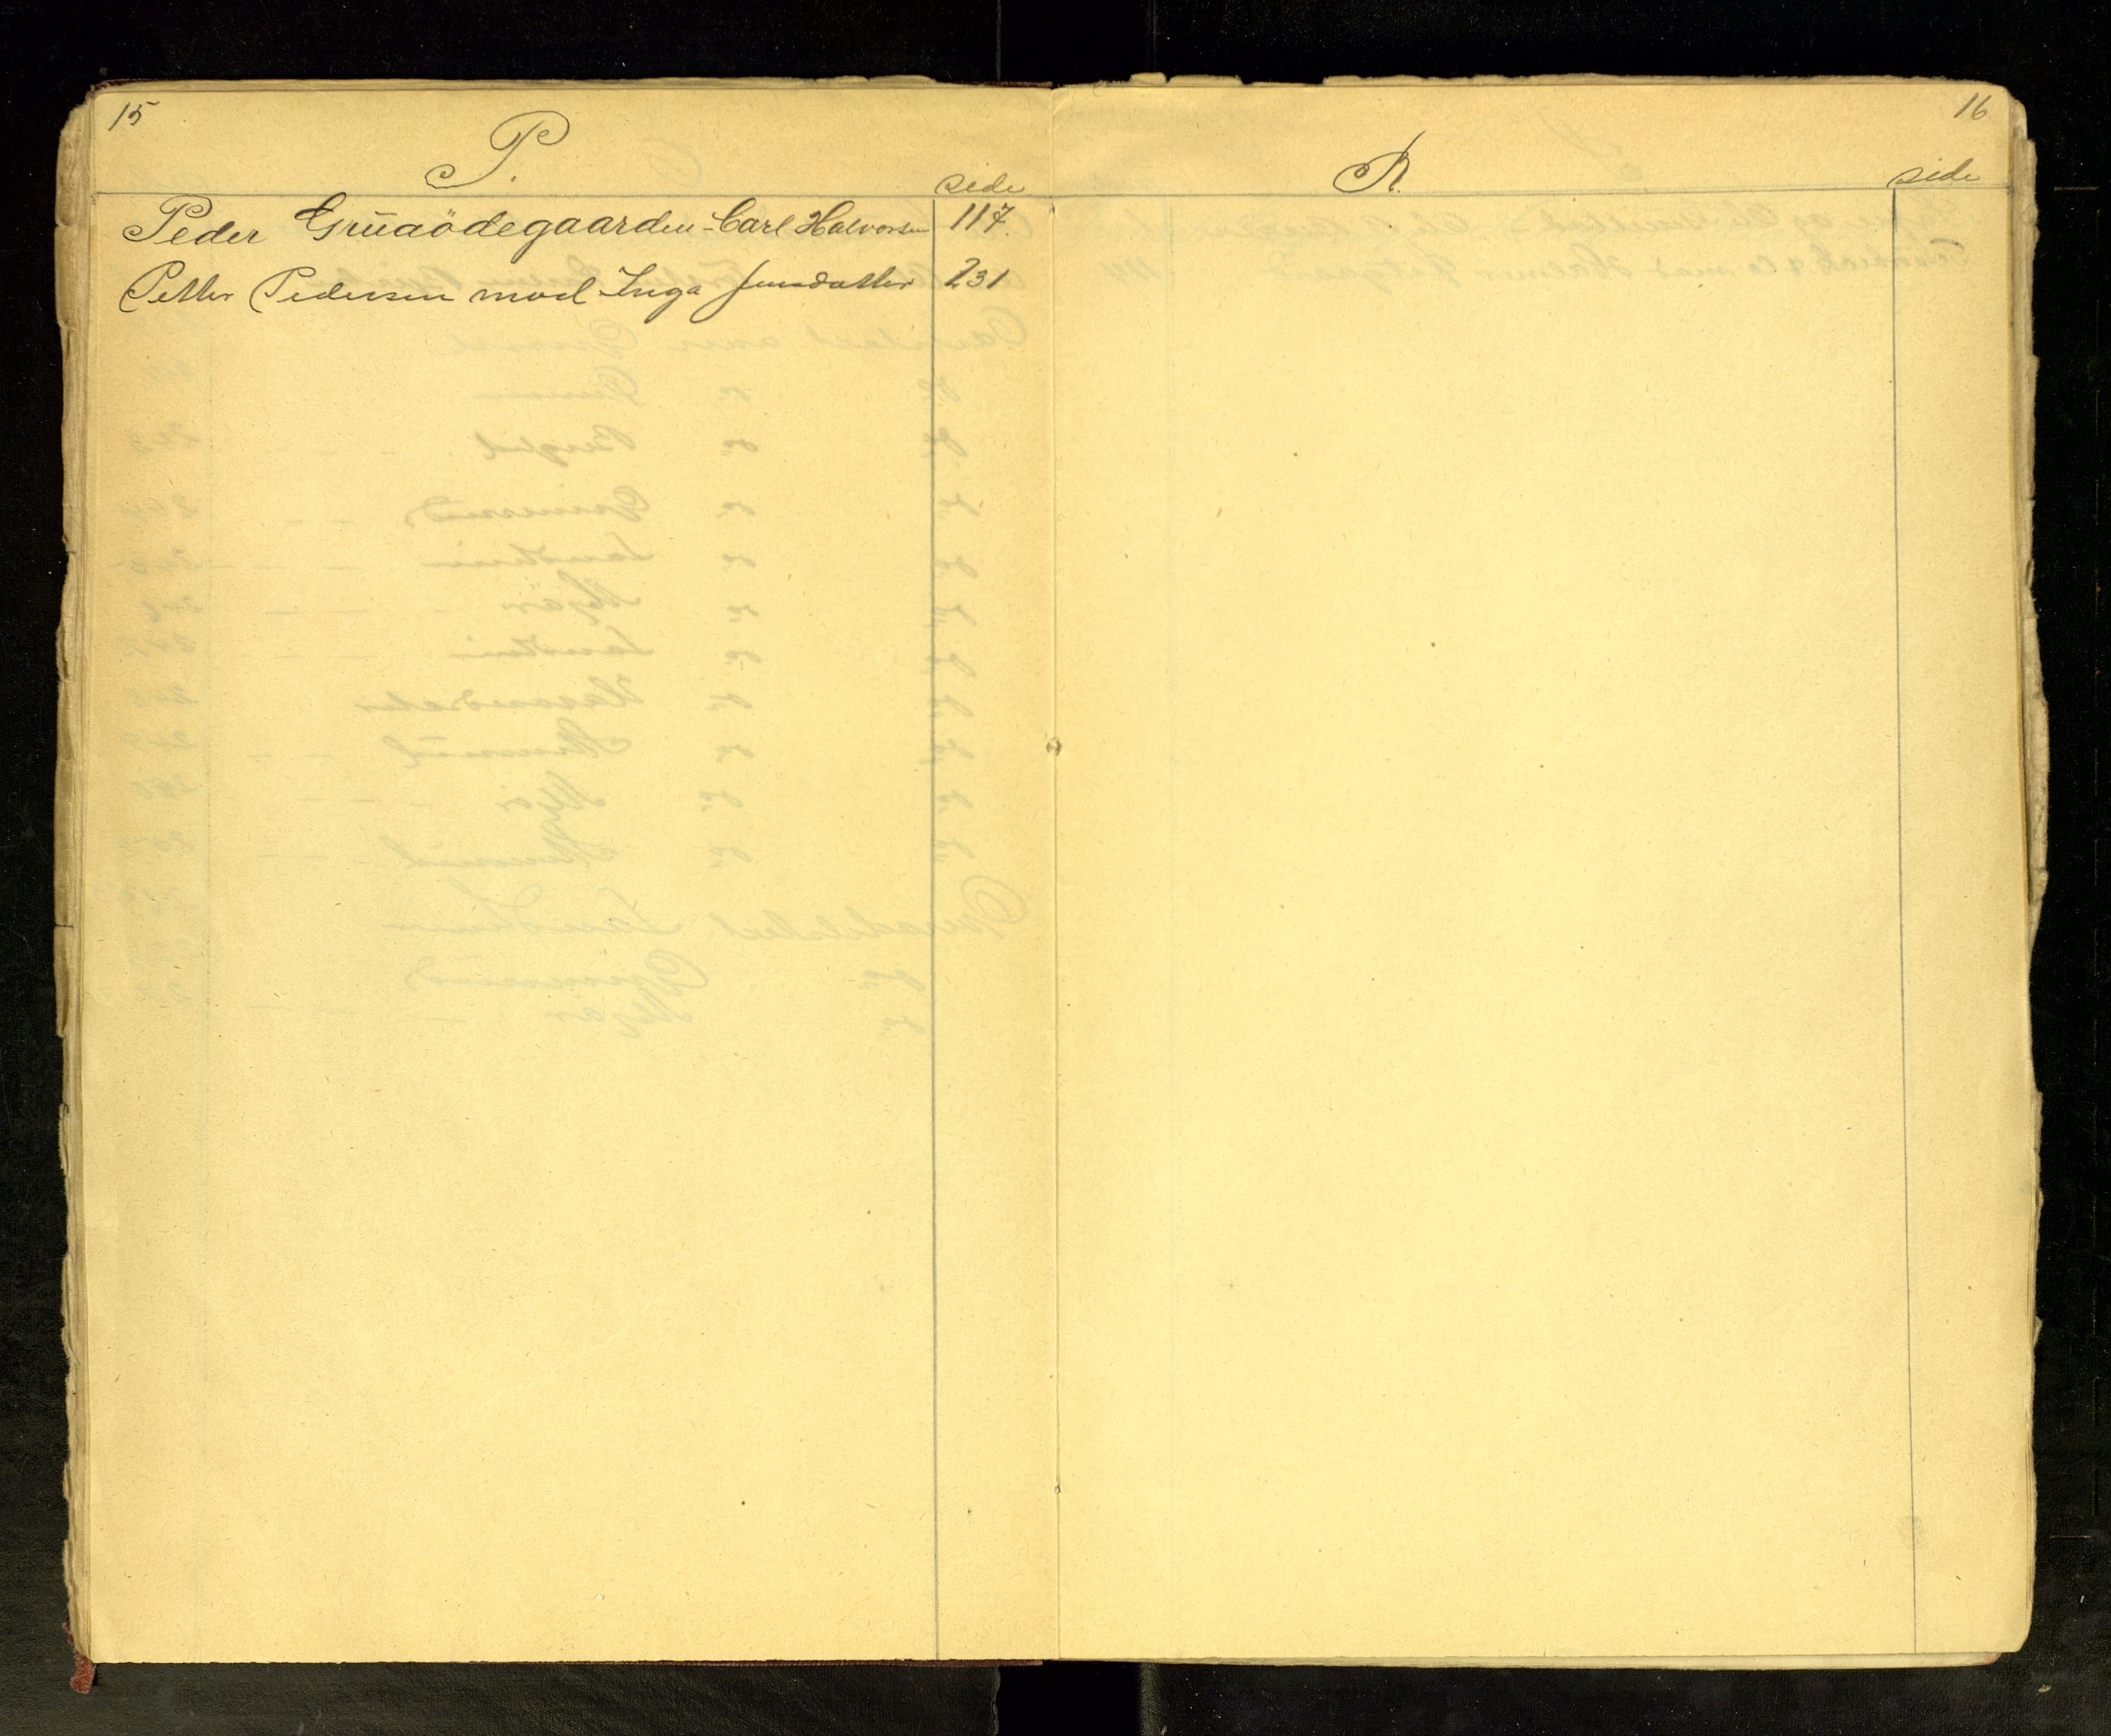 15
P.
side
Peder Gruaödegaarden - Carl Halvorsen 117.
Petter Pedersen mod Inga Jensdatter 231
16
R.
side